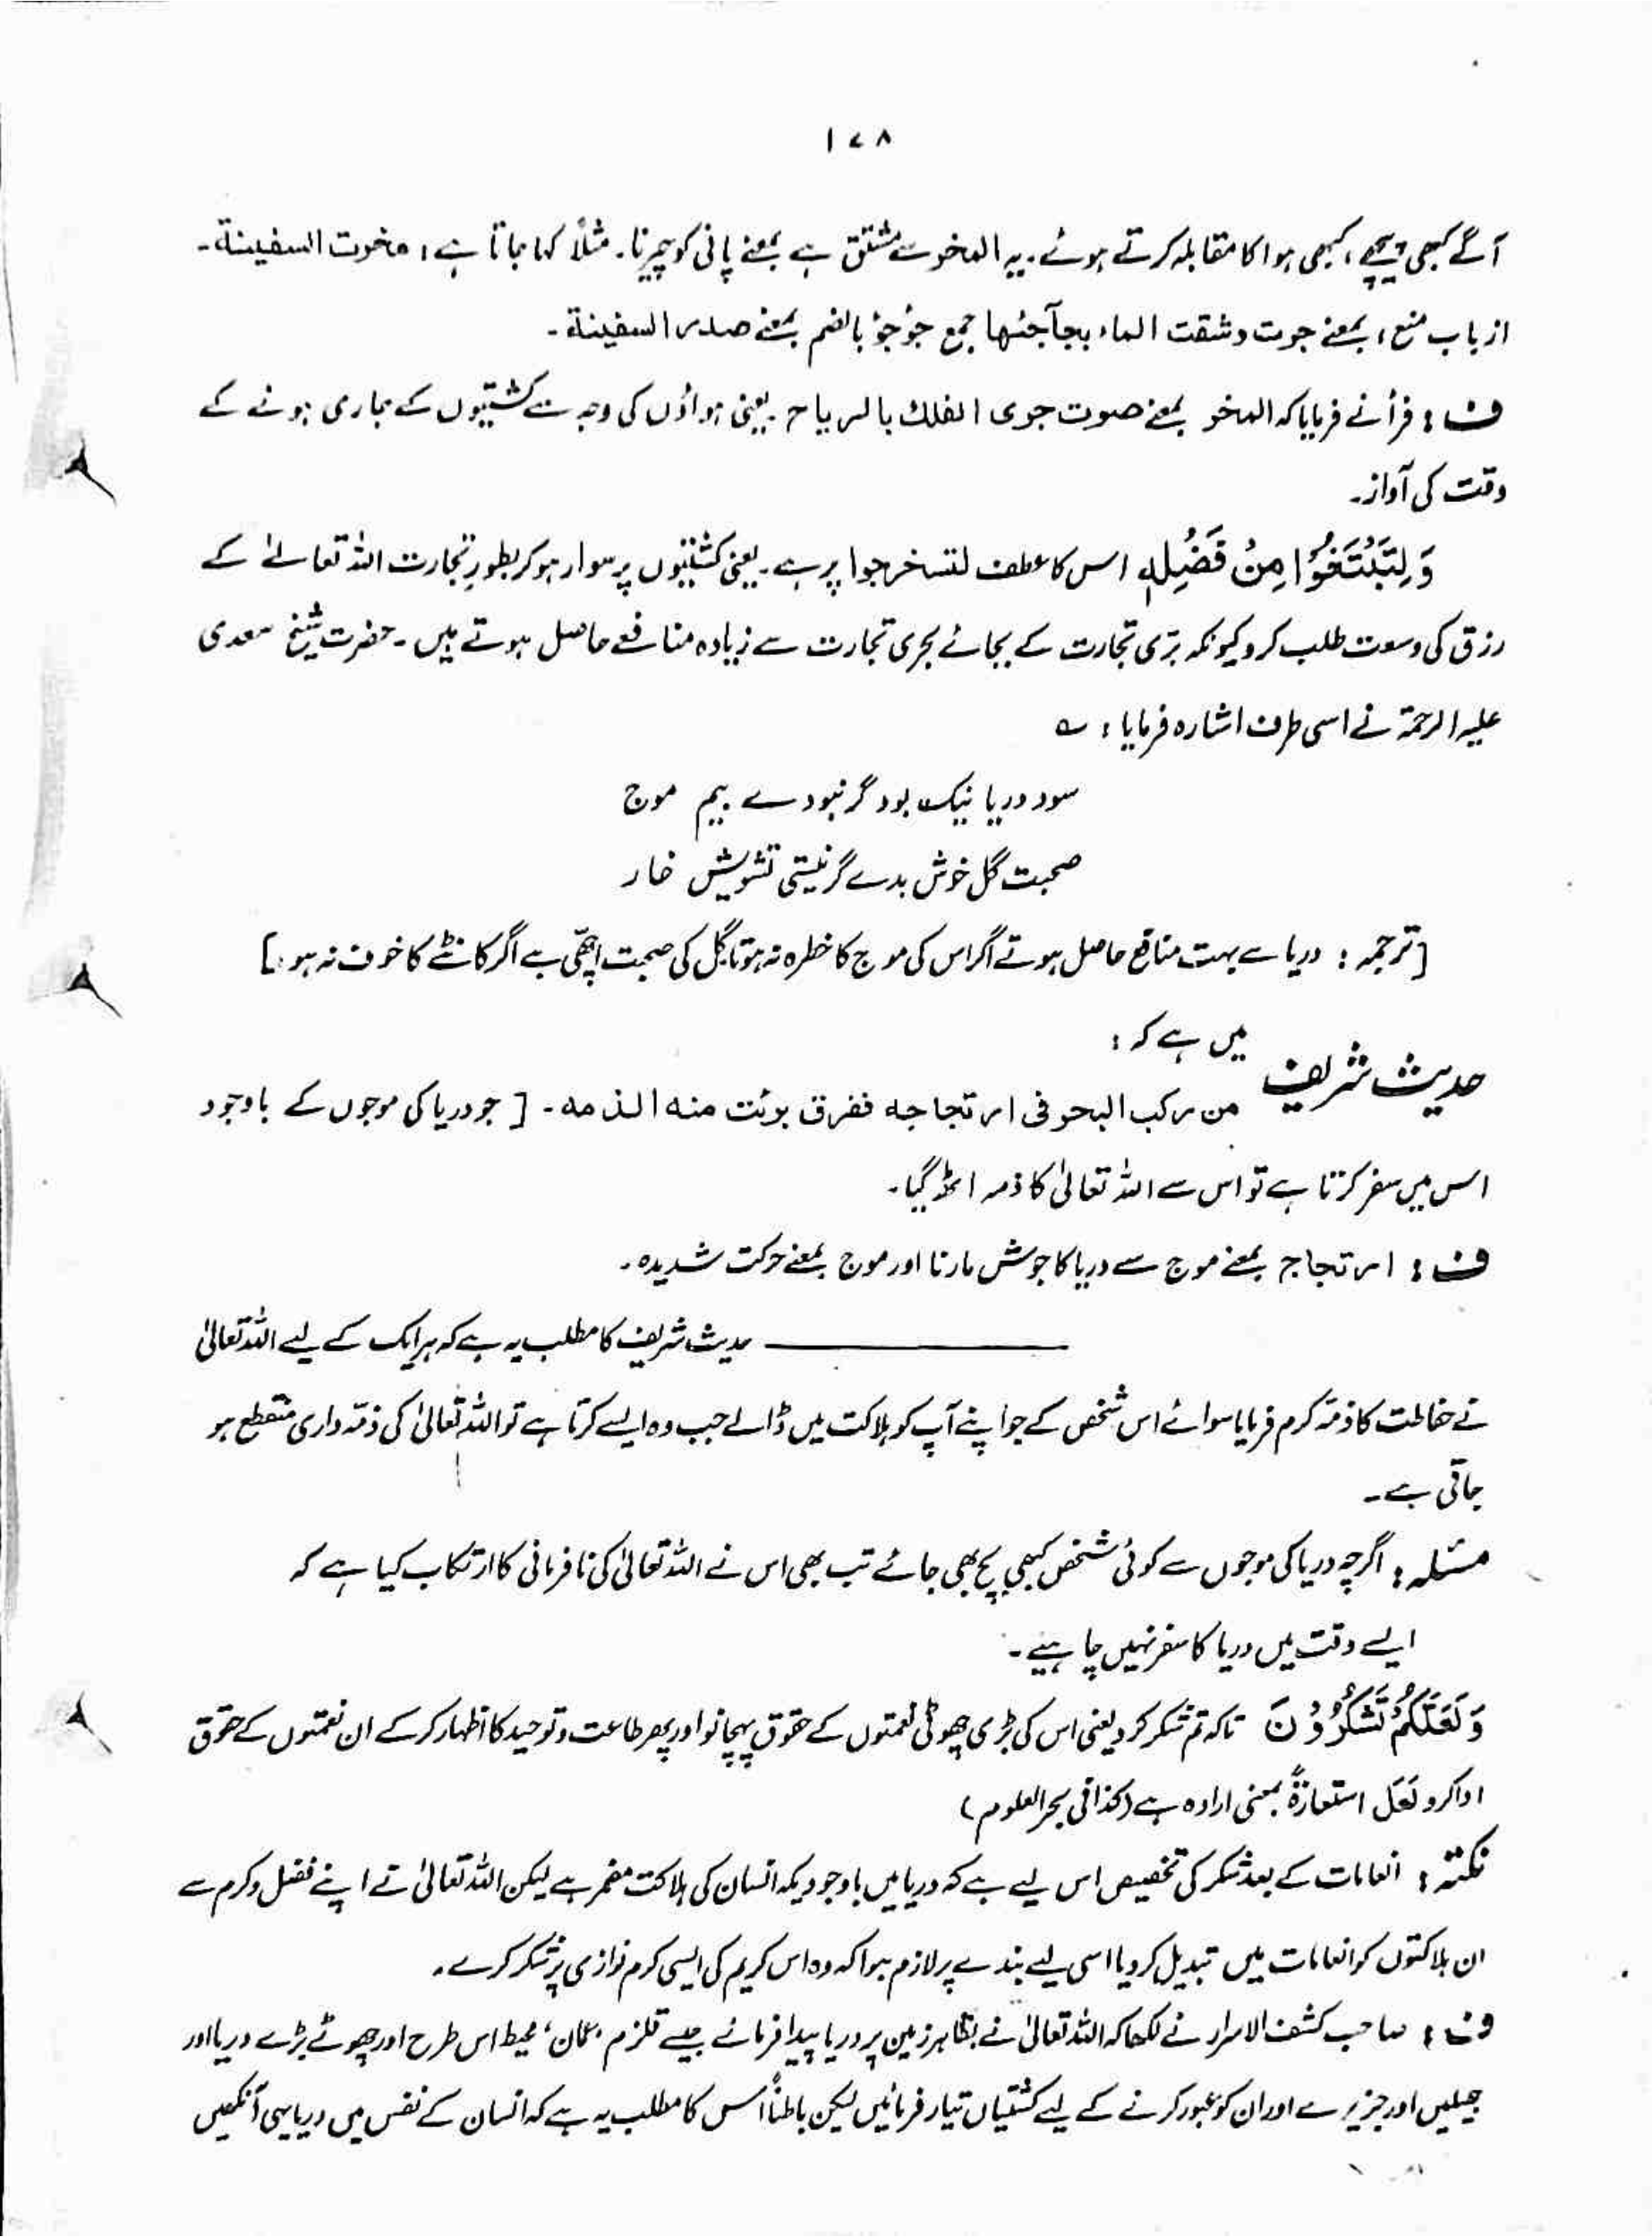 ۱۷۸
آگے کبھی پیچھے، کبھی ہوا کا مقابلہ کرتے ہوئے۔ یہ المخر سے مشتق ہے بمعنے پانی کو چیرنا۔ مثلاً کہا جاتا ہے: مخرت السفینة۔
از باب منع، بمعنے جرت وشقت الماء بجآجئها جمع جؤجؤ بالضم بمعنے صدر السفینة۔
ف: فرأ نے فرمایا کہ المخر بمعنے صوت جری الفلك بالریاح۔ یعنی ہواؤں کی وجہ سے کشتیوں کے جاری ہونے کے
وقت کی آواز۔
وَلِتَبْتَغُوْا مِنْ فَضْلِهٖ اس کا عطف لتستخرجوا پر ہے۔ یعنی کشتیوں پر سوار ہو کر بطورِ تجارت اللہ تعالےٰ کے
رزق کی وسعت طلب کرو کیونکہ بَرّی تجارت کے بجائے بحری تجارت سے زیادہ منافع حاصل ہوتے ہیں۔ حضرت شیخ سعدی
علیہ الرحمۃ نے اسی طرف اشارہ فرمایا: ؎
سود دریا نیک بود گر نبودے بیم موج
صحبت گل خوش بدے گر نیستی تشویش خار
[ترجمہ: دریا سے بہت منافع حاصل ہوتے اگر اس کی موج کا خطرہ نہ ہوتا گل کی صحبت اچھّی ہے اگر کانٹے کا خوف نہ ہو۔]
حدیث شریف میں ہے کہ:
من رکب البحر فی ارتجاجه فغرق برئت منه الذمه۔ [جو دریا کی موجوں کے باوجود
اس میں سفر کرتا ہے تو اس سے اللہ تعالیٰ کا ذمہ اٹھ گیا۔
ف: ارتجاج بمعنے موج سے دریا کا جوش مارنا اور موج بمعنے حرکت شدیدہ۔
حدیث شریف کا مطلب یہ ہے کہ ہر ایک کے لیے اللہ تعالیٰ
نے حفاظت کا ذمّہ کرم فرمایا سوائے اس شخص کے جو اپنے آپ کو ہلاکت میں ڈالے جب وہ ایسے کرتا ہے تو اللہ تعالیٰ کی ذمّہ داری منقطع ہو
جاتی ہے۔
مسئلہ: اگرچہ دریا کی موجوں سے کوئی شخص کبھی بچ بھی جائے تب بھی اس نے اللہ تعالیٰ کی نافرمانی کا ارتکاب کیا ہے کہ
ایسے وقت میں دریا کا سفر نہیں چاہیے۔
وَلَعَلَّكُمْ تَشْكُرُوْنَ تاکہ تم شکر کرو یعنی اس کی بڑی چھوٹی نعمتوں کے حقوق پہچانو اور پھر طاعت و توحید کا اظہار کر کے ان نعمتوں کے حقوق
ادا کرو لَعَل استعارۃً بمعنی ارادہ ہے (کذا فی بحر العلوم)
نکتہ: انعامات کے بعد شکر کی تخصیص اس لیے ہے کہ دریا میں باوجودیکہ انسان کی ہلاکت مضمر ہے لیکن اللہ تعالیٰ نے اپنے فضل و کرم سے
ان ہلاکتوں کو انعامات میں تبدیل کر دیا اسی لیے بندے پر لازم ہوا کہ وہ اس کریم کی ایسی کرم نوازی پر شکر کرے۔
ف: صاحب کشف الاسرار نے لکھا کہ اللہ تعالیٰ نے بظاہر زمین پر دریا پیدا فرمائے جیسے قلزم، عمان، محیط اس طرح اور چھوٹے بڑے دریا اور
جھیلیں اور جزیرے اور ان کو عبور کرنے کے لیے کشتیاں تیار فرمائیں لیکن باطناً اس کا مطلب یہ ہے کہ انسان کے نفس میں دریا سی آنکھیں